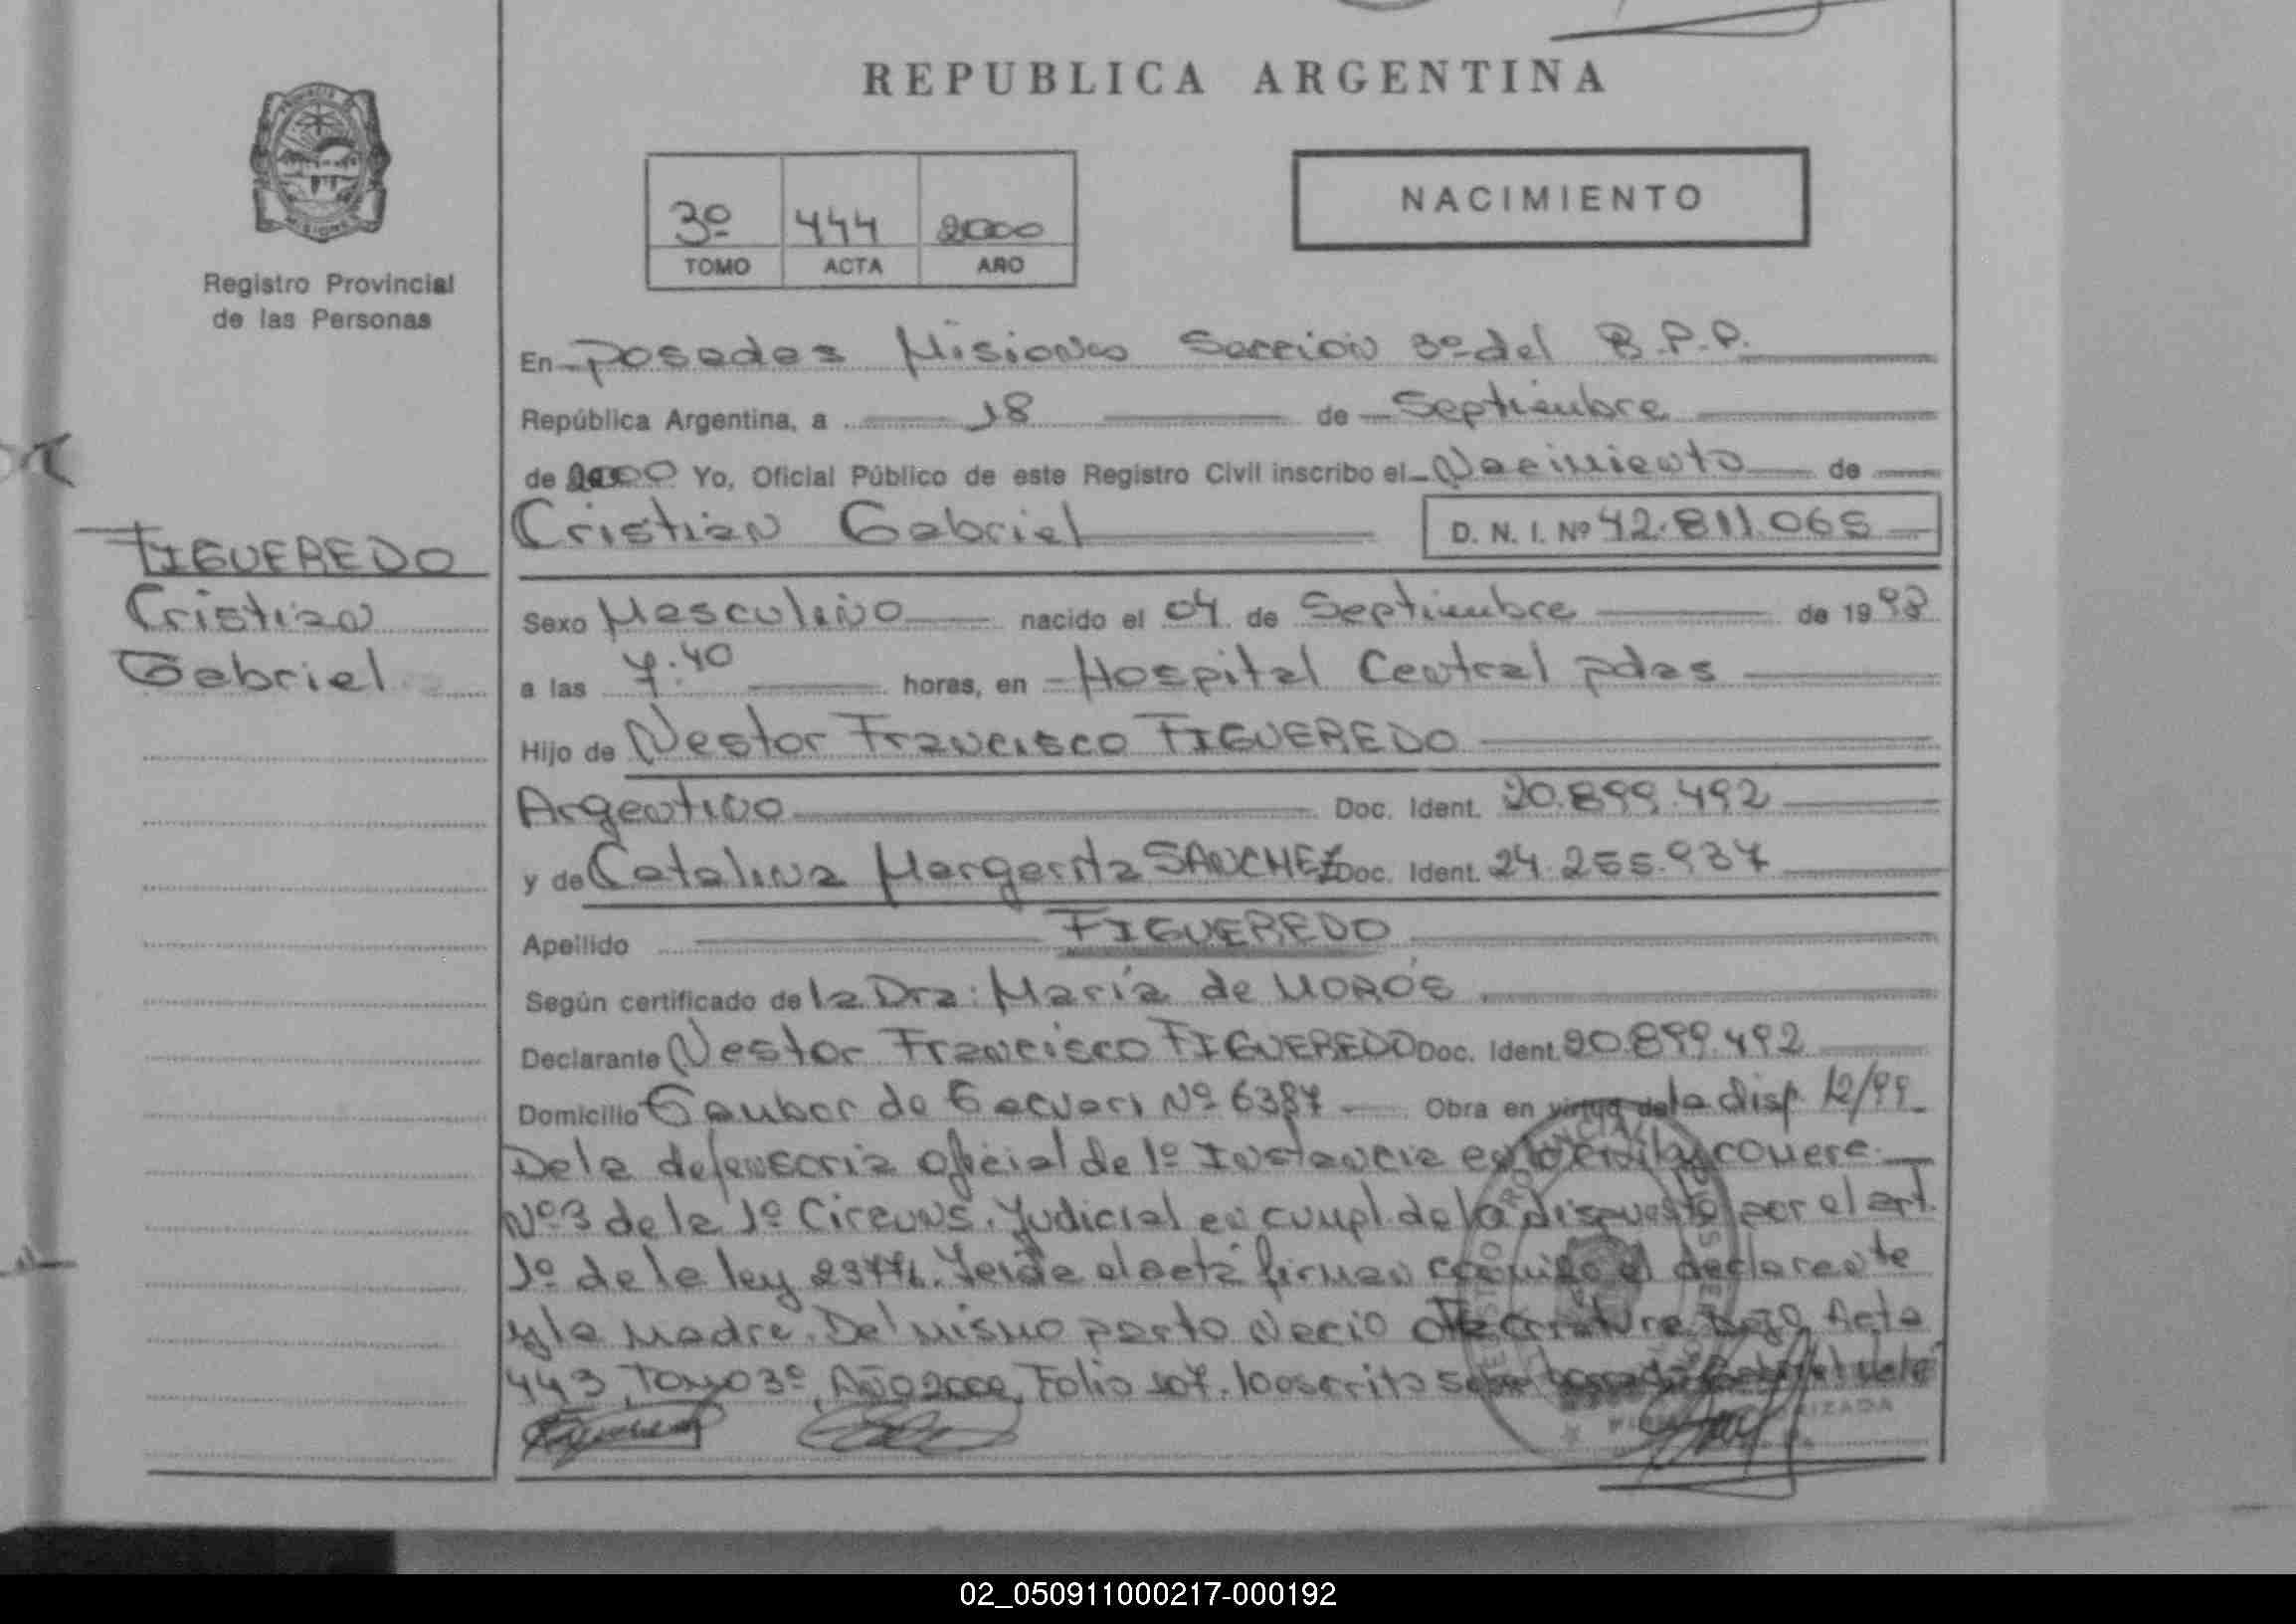 REPUBLICA ARGENTINA
3º 444 2000
TOMO ACTA AÑO
NACIMIENTO
Registro Provincial
de las Personas
En Posadas Misiones Sección 3º del R.P.P.
República Argentina, a 18 de Septiembre
de 2000 Yo, Oficial Público de este Registro Civil inscribo el Nacimiento de
Cristian Gabriel D. N. I. Nº 42.811.065
FIGUEREDO
Cristian
Gabriel
Sexo Masculino nacido el 04 de Septiembre de 1998
a las 7:40 horas, en Hospital Central pdas
Hijo de Nestor Francisco FIGUEREDO
Argentino Doc. Ident. 20.899.492
y de Catalina Margarita SANCHEZ Doc. Ident. 24.255.937
Apellido FIGUEREDO
Según certificado de la Dra: María de
Declarante Nestor Francisco FIGUEREDO Doc. Ident. 20.899.492
Domicilio de Nº 6387 Obra en virtud de la disp. 12/99
De la defensoria oficial de 1º Instancia en lo civil y comerc.
Nº 3 de la 1º Circuns. Judicial en cumpl. de lo dispuesto por el art.
1º de la ley Leida el acta firman conmigo el declarante
y la Madre. Del mismo parto nacio otra criatura bajo Acta
443, Tomo 3º, Año 2000, Folio 107. Inscrito
02_050911000217-000192